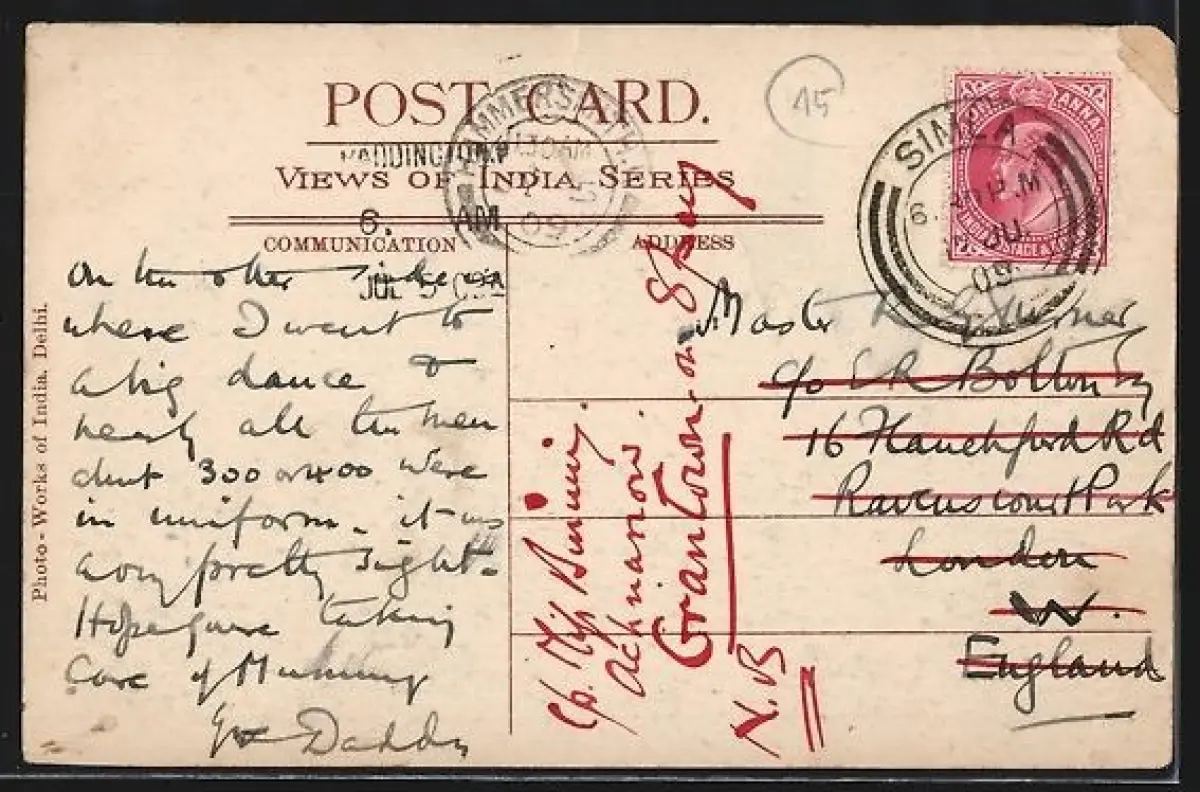 POST CARD.
VIEWS OF INDIA SERIES
COMMUNICATION
ADDRESS
15
HAMMERSMITH
30 AM
09
PADDINGTON
6. AM
JUL 5 09
SIMLA
6. PM
JU
09
ONE ANNA
INDIA POSTAGE
Photo-Works of India. Delhi.
On the other side is
where I went to
a big dance &
nearly all the men
about 300 or 400 were
in uniform. it was
a very pretty sight.
Hope you're taking
care of Mummy
Yr Daddy
Master Turner
c/o E R Bolton
16 Rd
Ravenscourt Park
London
W.
England
c/o. Miss
Achnarrow
Grantown-on-Spey
N.B